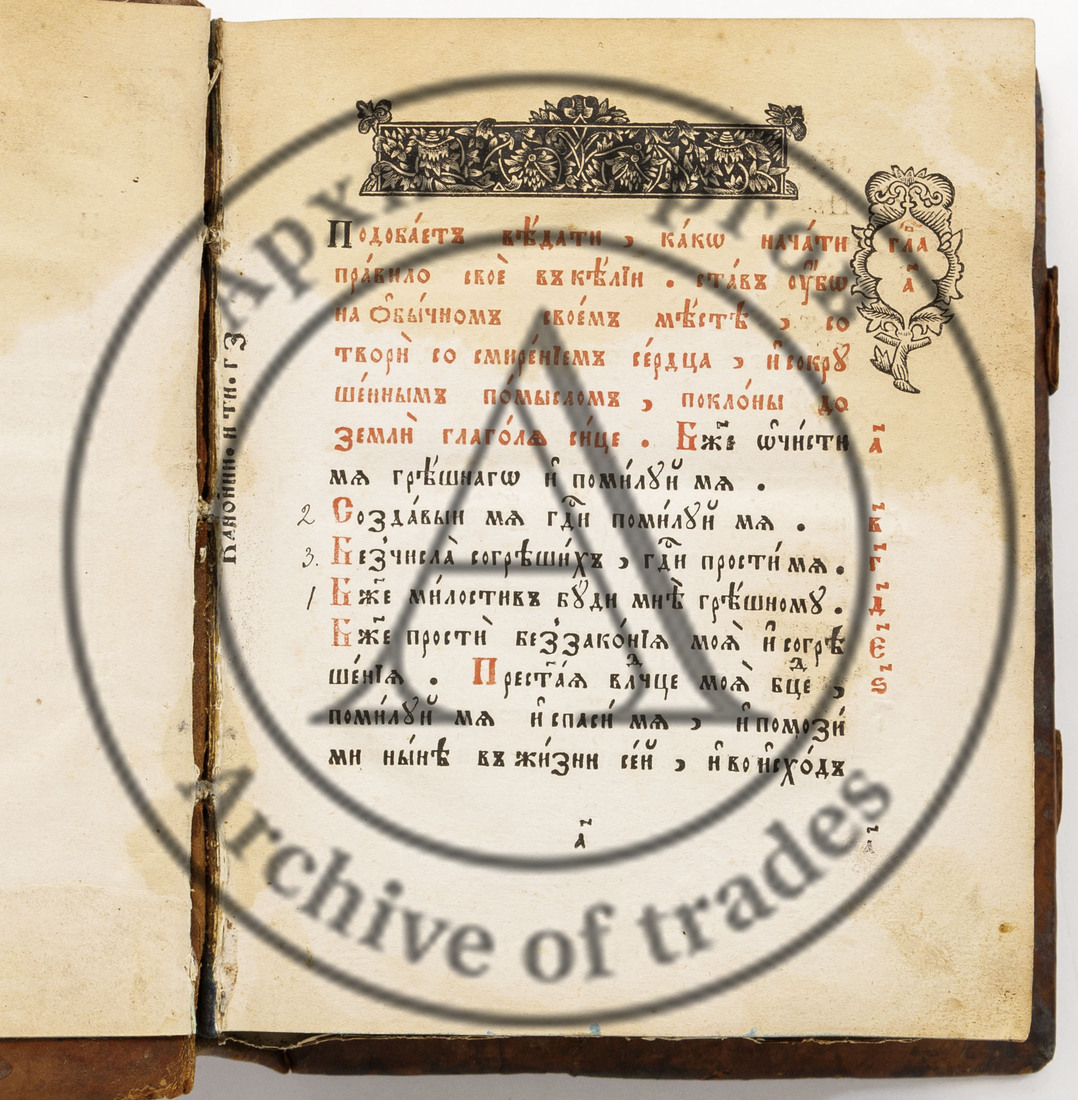 Подоба́етъ вѣ́дати , ка́кѡ нача́ти
пра́вило своѐ въ кѣ́лїи . ста́въ ᲂу҆́бѡ
на ѻ҆бы́чномъ свое́мъ мѣ́стѣ , со
творѝ со смире́нїемъ се́рдца , и҆ сокрꙋ
ше́ннымъ по́мысломъ , покло́ны до
землѝ глаго́лѧ си́це . Бж҃е ѡ҆чи́сти
мѧ грѣ́шнагѡ и҆ поми́лꙋй мѧ .
2 Созда́выи мѧ гдⷭ҇и поми́лꙋй мѧ .
3. Без̾числа̀ согрѣши́хъ , гдⷭ҇и прости́ мѧ .
1 Бж҃е ми́лостивъ бꙋ́ди мнѣ̀ грѣ́шномꙋ .
Бж҃е простѝ без̾зако́нїѧ моѧ̀ и҆ согрѣ
ше́нїѧ . Прест҃а́ѧ влⷣчце моѧ̀ бцⷣе ,
поми́лꙋй мѧ и҆ спаси́ мѧ , и҆ помози́
ми ны́нѣ въ жи́зни се́й , и҆ во и҆схо́дъ
а҃
гла́
а҃
а҃
в҃
г҃
д҃
е҃
ѕ҃
Archive of trades